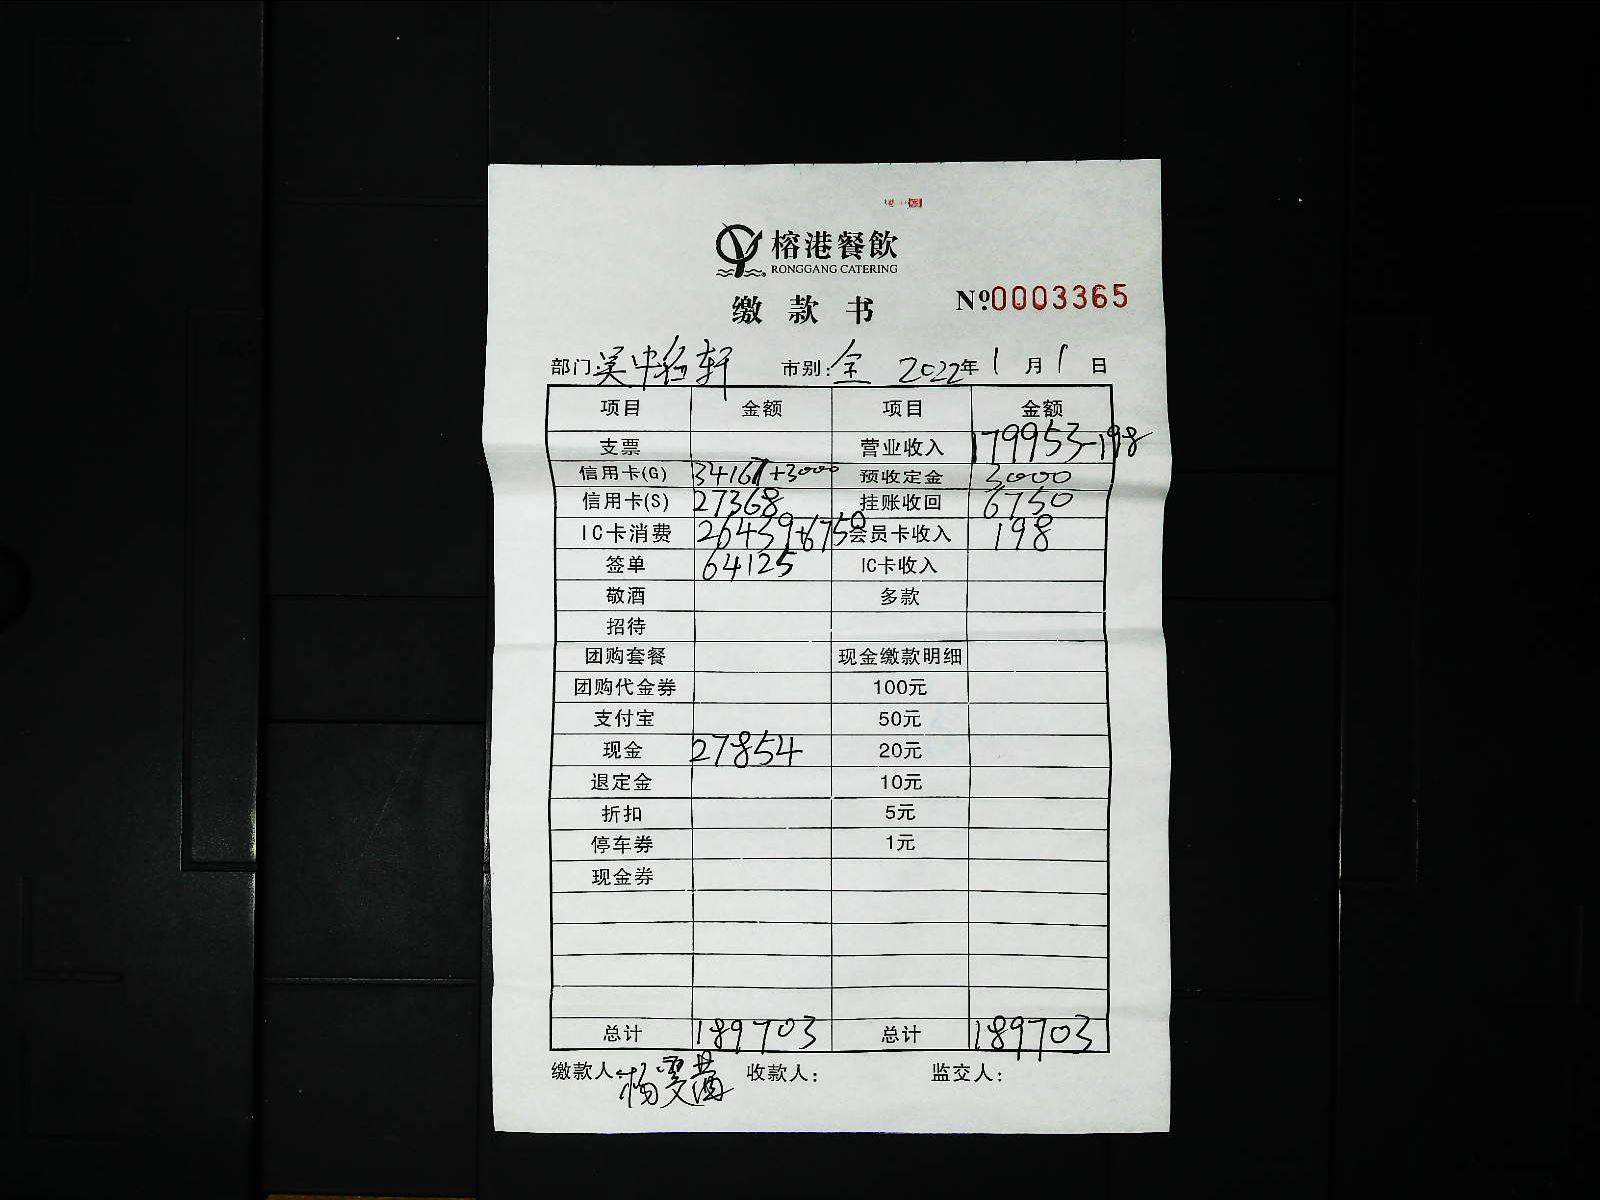 榕港餐飲
RONGGANG CATERING
缴款书 №0003365
部门 吴中 轩 市别：全 2022年1月1日
项目 金额 项目 金额
支票 营业收入 179953-198
信用卡(G) 34167+3000 预收定金 3000
信用卡(S) 27368 挂账收回 6750
IC卡消费 26439+6750 会员卡收入 198
签单 64125 IC卡收入
敬酒 多款
招待
团购套餐 现金缴款明细
团购代金券 100元
支付宝 50元
现金 27854 20元
退定金 10元
折扣 5元
停车券 1元
现金券
总计 189703 总计 189703
缴款人：杨雯 收款人： 监交人：